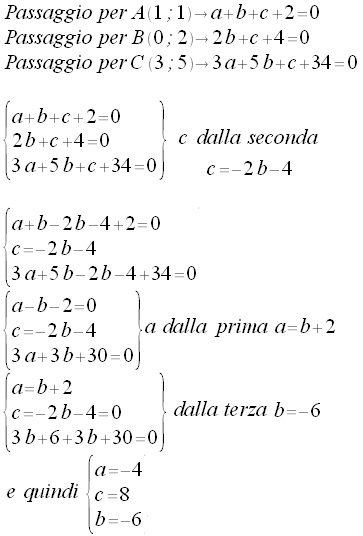 Passaggio per A(1;1)→a+b+c+2=0
Passaggio per B(0;2)→2b+c+4=0
Passaggio per C(3;5)→3a+5b+c+34=0
a+b+c+2=0
2b+c+4=0
3a+5b+c+34=0
c dalla seconda
c=−2b−4
a+b−2b−4+2=0
c=−2b−4
3a+5b−2b−4+34=0
a−b−2=0
c=−2b−4
3a+3b+30=0
a dalla prima a=b+2
a=b+2
c=−2b−4=0
3b+6+3b+30=0
dalla terza b=−6
e quindi
a=−4
c=8
b=−6